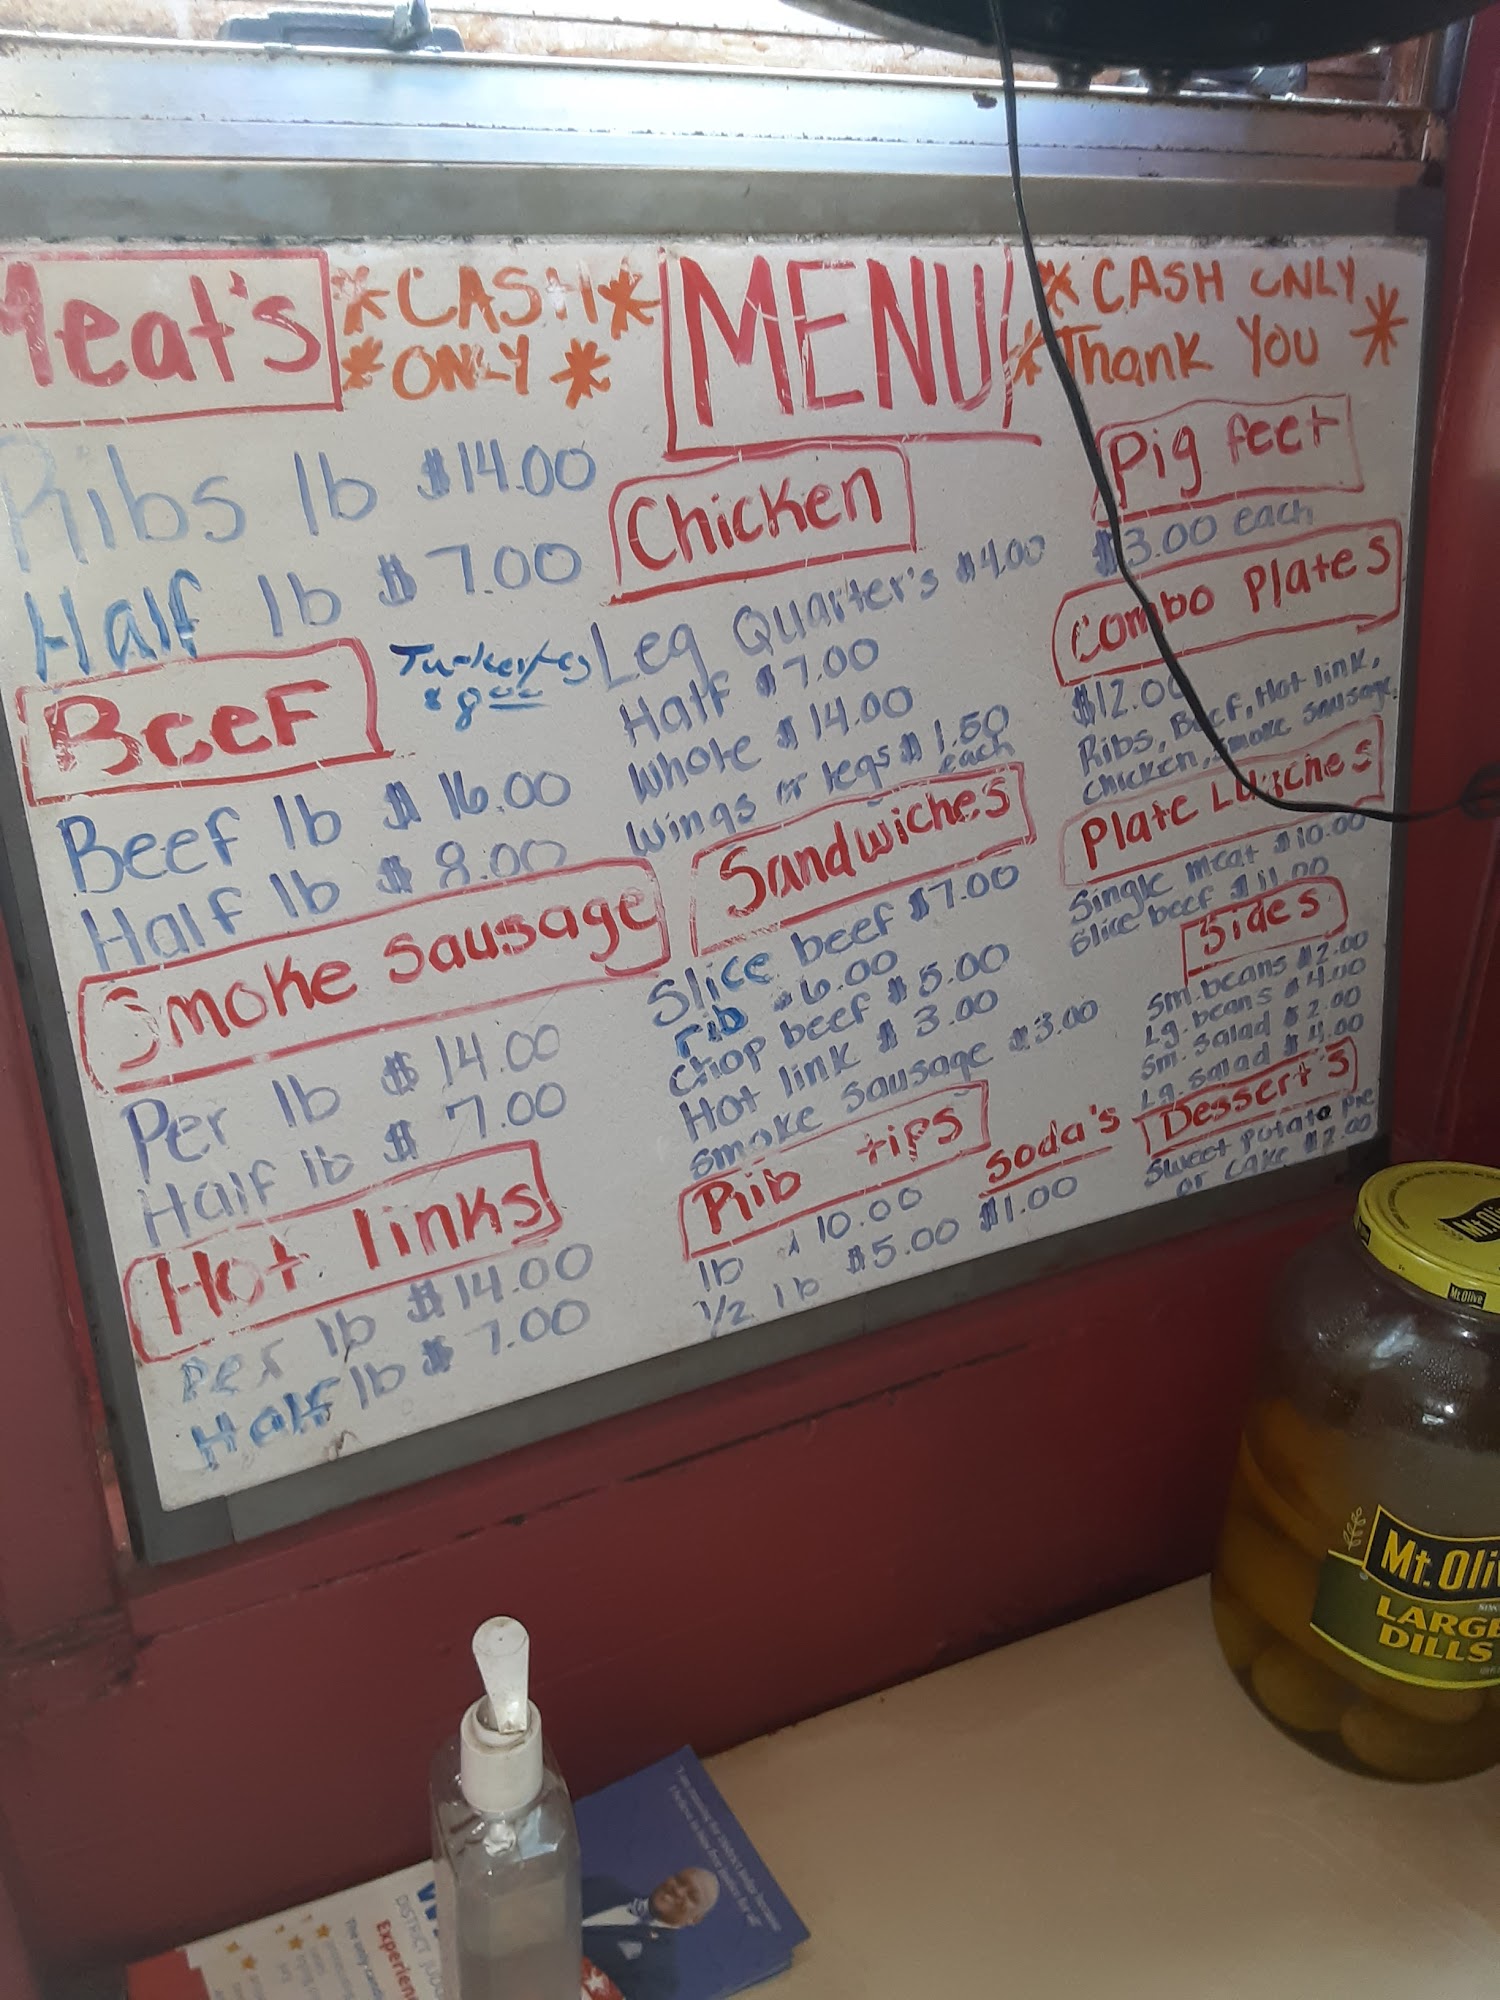 Meat's
*CASH*
*ONLY*
MENU
* CASH ONLY
* Thank You *
Ribs lb $14.00
Half lb $7.00
Beef
Turkey legs
$8.00
Beef lb $16.00
Half lb $8.00
Smoke Sausage
Per lb $14.00
Half lb $7.00
Hot links
Per lb $14.00
Half lb $7.00
Chicken
Leg Quarter's $4.00
Half $7.00
Whole $14.00
Wings or legs $1.50
each
Sandwiches
Slice beef $7.00
rib $6.00
Chop beef $5.00
Hot link $3.00
Smoke Sausage $3.00
Rib tips
lb $10.00
1/2 lb $5.00
Soda's
$1.00
Pig feet
$3.00 each
Combo Plates
$12.00
Ribs, Beef, Hot link,
chicken, Smoke Sausage.
Plate Lunches
Single meat $10.00
Slice beef $11.00
Sides
Sm. beans $2.00
Lg. beans $4.00
Sm. Salad $2.00
Lg. Salad $4.00
Dessert's
Sweet Potato Pie
or Cake $2.00
Mt. Olive
LARGE
DILLS
DISTRICT
Experien